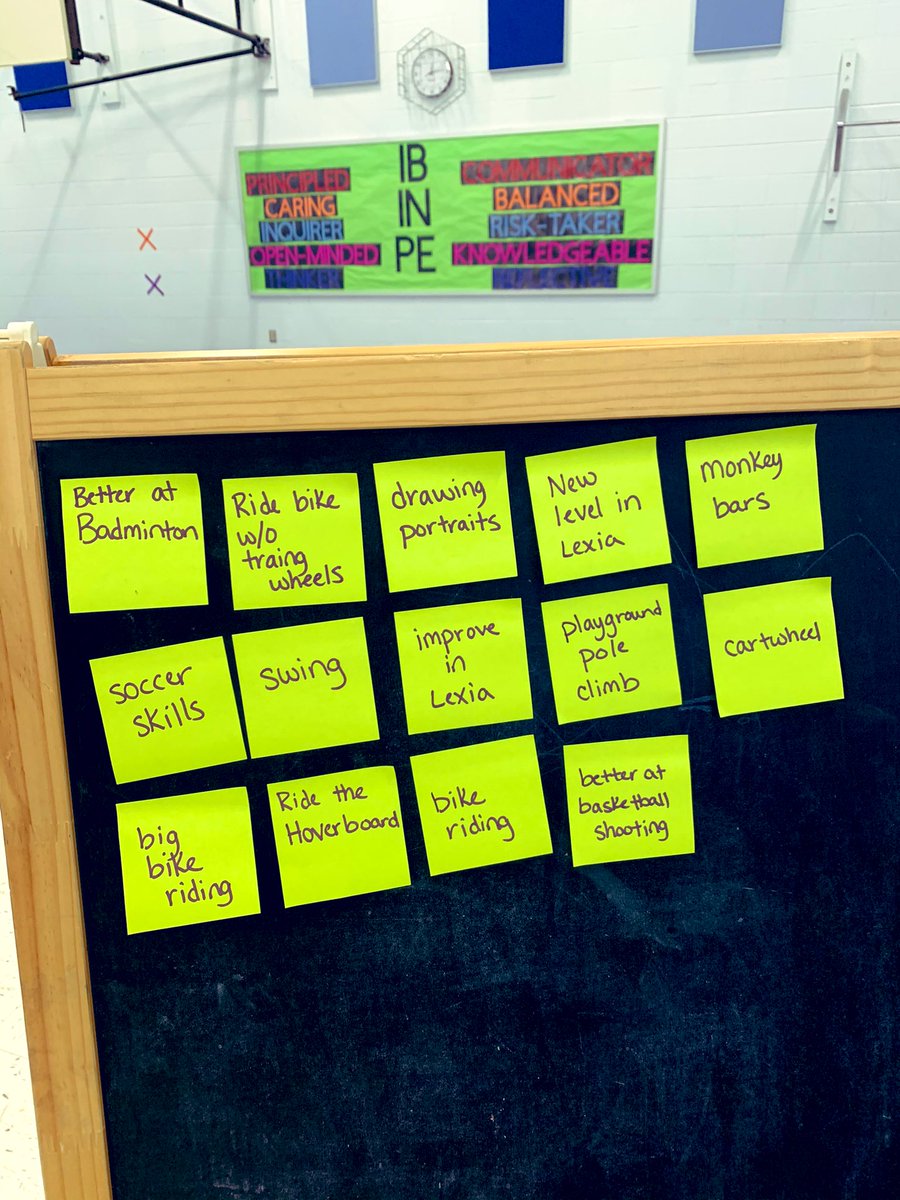 IB
IN
PE
PRINCIPLED
CARING
INQUIRER
OPEN-MINDED
THINKER
COMMUNICATOR
BALANCED
RISK-TAKER
KNOWLEDGEABLE
Better at
Badminton
Ride bike
w/o
traing
wheels
drawing
portraits
New
level in
Lexia
monkey
bars
soccer
skills
swing
improve
in
Lexia
playground
pole
climb
cartwheel
big
bike
riding
Ride the
Hoverboard
bike
riding
better at
basketball
shooting